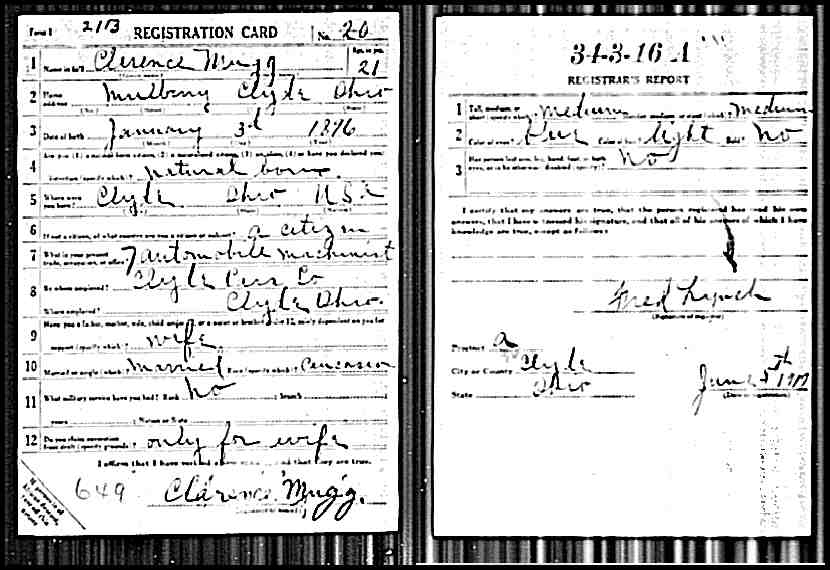 Form 1 2113 REGISTRATION CARD No. 20
1 Name in full Clerence Mugg Age, in yrs. 21
2 Home address Mulberry Clyde Ohio
3 Date of birth January 3rd 1896
(Month) (Day) (Year)
4 Are you (1) a natural-born citizen, (2) a naturalized citizen, (3) an alien, (4) or have you declared your
intention (specify which)? natural born
5 Where were you born? Clyde Ohio USA
6 If not a citizen, of what country are you a citizen or subject? a citizen
7 What is your present trade, occupation, or office? automobile machinist
8 By whom employed? Clyde Cars Co
Where employed? Clyde Ohio.
9 Have you a father, mother, wife, child under 12, or a sister or brother under 12, solely dependent on you for
support (specify which)? wife
10 Married or single (which)? Married Race (specify which)? Caucasian
11 What military service have you had? Rank No ; branch
years ; Nation or State
12 Do you claim exemption from draft (specify grounds)? only for wife
I affirm that I have verified above and that they are true.
649 Clarence Mugg.
34-3-16 A
REGISTRAR'S REPORT
1 Tall, medium, or short (specify which)? medium Slender, medium, or stout (which)? medium
2 Color of eyes? Color of hair? light Bald? No
3 Has person lost arm, leg, hand, foot, or both eyes, or is he otherwise disabled (specify)? No
I certify that my answers are true, that the person registered has read his own
answers, that I have witnessed his signature, and that all of his answers of which I have
knowledge are true, except as follows:
Fred Lynch
(Signature of registrar)
Precinct A
City or County Clyde
State Ohio June 5th 1917
(Date of registration)